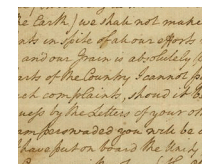 the Earth) we shall not make
nts in spite of all our efforts
and our Grain is absolutely
arts of the Country I cannot p
ch complaints, shoud it
uess by the Letters of your ot
am perswaded you will be
have put on board the